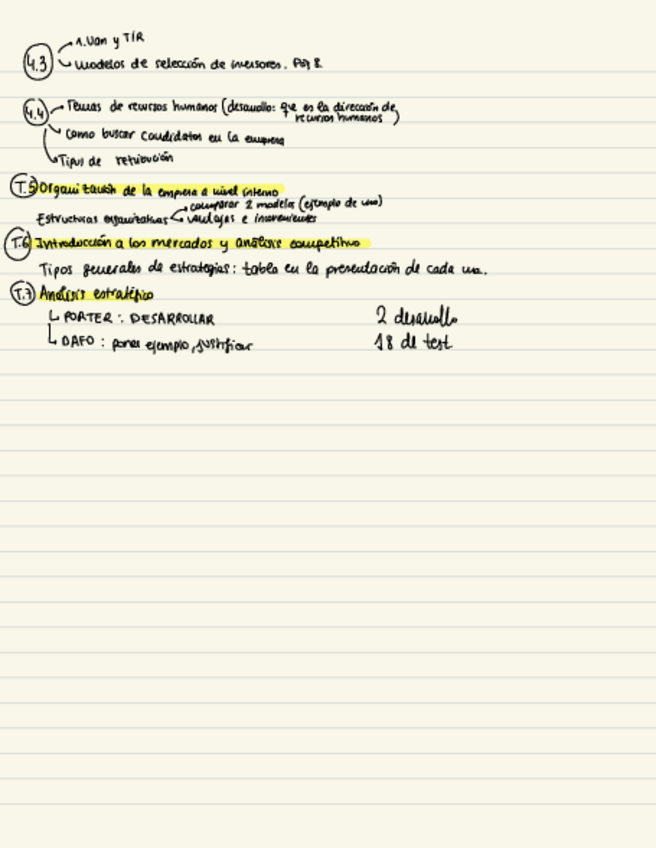 4.3 1. Van y TIR
Modelos de selección de inversores. Pág 8.
4.4 Temas de recursos humanos (desarrollo: que es la dirección de
recursos humanos)
como buscar candidatos en la empresa
Tipos de retribución
T.5 Organización de la empresa a nivel interno
comparar 2 modelos (ejemplo de uno)
Estructuras organizativas ventajas e inconvenientes
T.6 Introducción a los mercados y análisis competitivo
Tipos generales de estrategias: tabla en la presentación de cada una.
T.7 Análisis estratégico
PORTER: DESARROLLAR 2 desarrollo
DAFO: poner ejemplo, justificar 18 de test